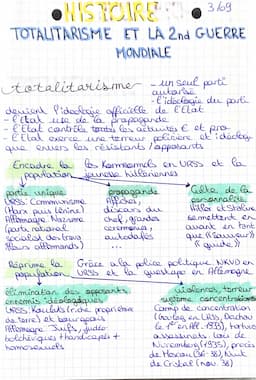 HISTOIRE
3/09
TOTALITARISME ET LA 2nd GUERRE
MONDIALE
totalitarisme
- un seul parti
autorisé
- l'idéologie du parti
devient l'idéologie officielle de l'Etat
- l'Etat use de la propagande
- l'Etat contrôle toutes les activités E et pro
- l'Etat exerce une terreur policière et idéolog
que envers les résistants / opposants
Encadre la population
les Komsomols en URSS et la
jeunesse hitlérienne
partis unique
URSS: Communisme
(Marx puis Lénine)
Allemagne: Nazisme
(parti national
socialiste des trav
ailleurs allemands)
propagande
Affiches,
discours du
chef, grandes
cérémonies,
autodafés
...
Culte de la
personnalité
Hitler et Staline
se mettent en
avant en tant
que
guide
Réprime la population
Grâce à la police politique NKVD en
URSS et la guestapo en Allemagne
élimination des opposants,
ennemis idéologiques
URSS: Koulaks (riche propriétaire
de terre) et bourgeois
Allemagne: Juifs, judéo-
bolchéviques + handicapés +
homosexuels
Violences, terreur
système concentrationn
Camp de concentration
(Goulag en URSS, Dachau
le 1er en All. 1933),
assassinats. Lois de
Nuremberg (1935), procès
de Moscou (36-38), Nuit
de Cristal (nov. 38)